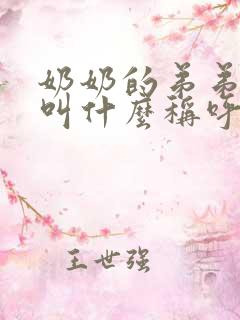 奶奶的弟弟
叫什麼稱呼
王世强